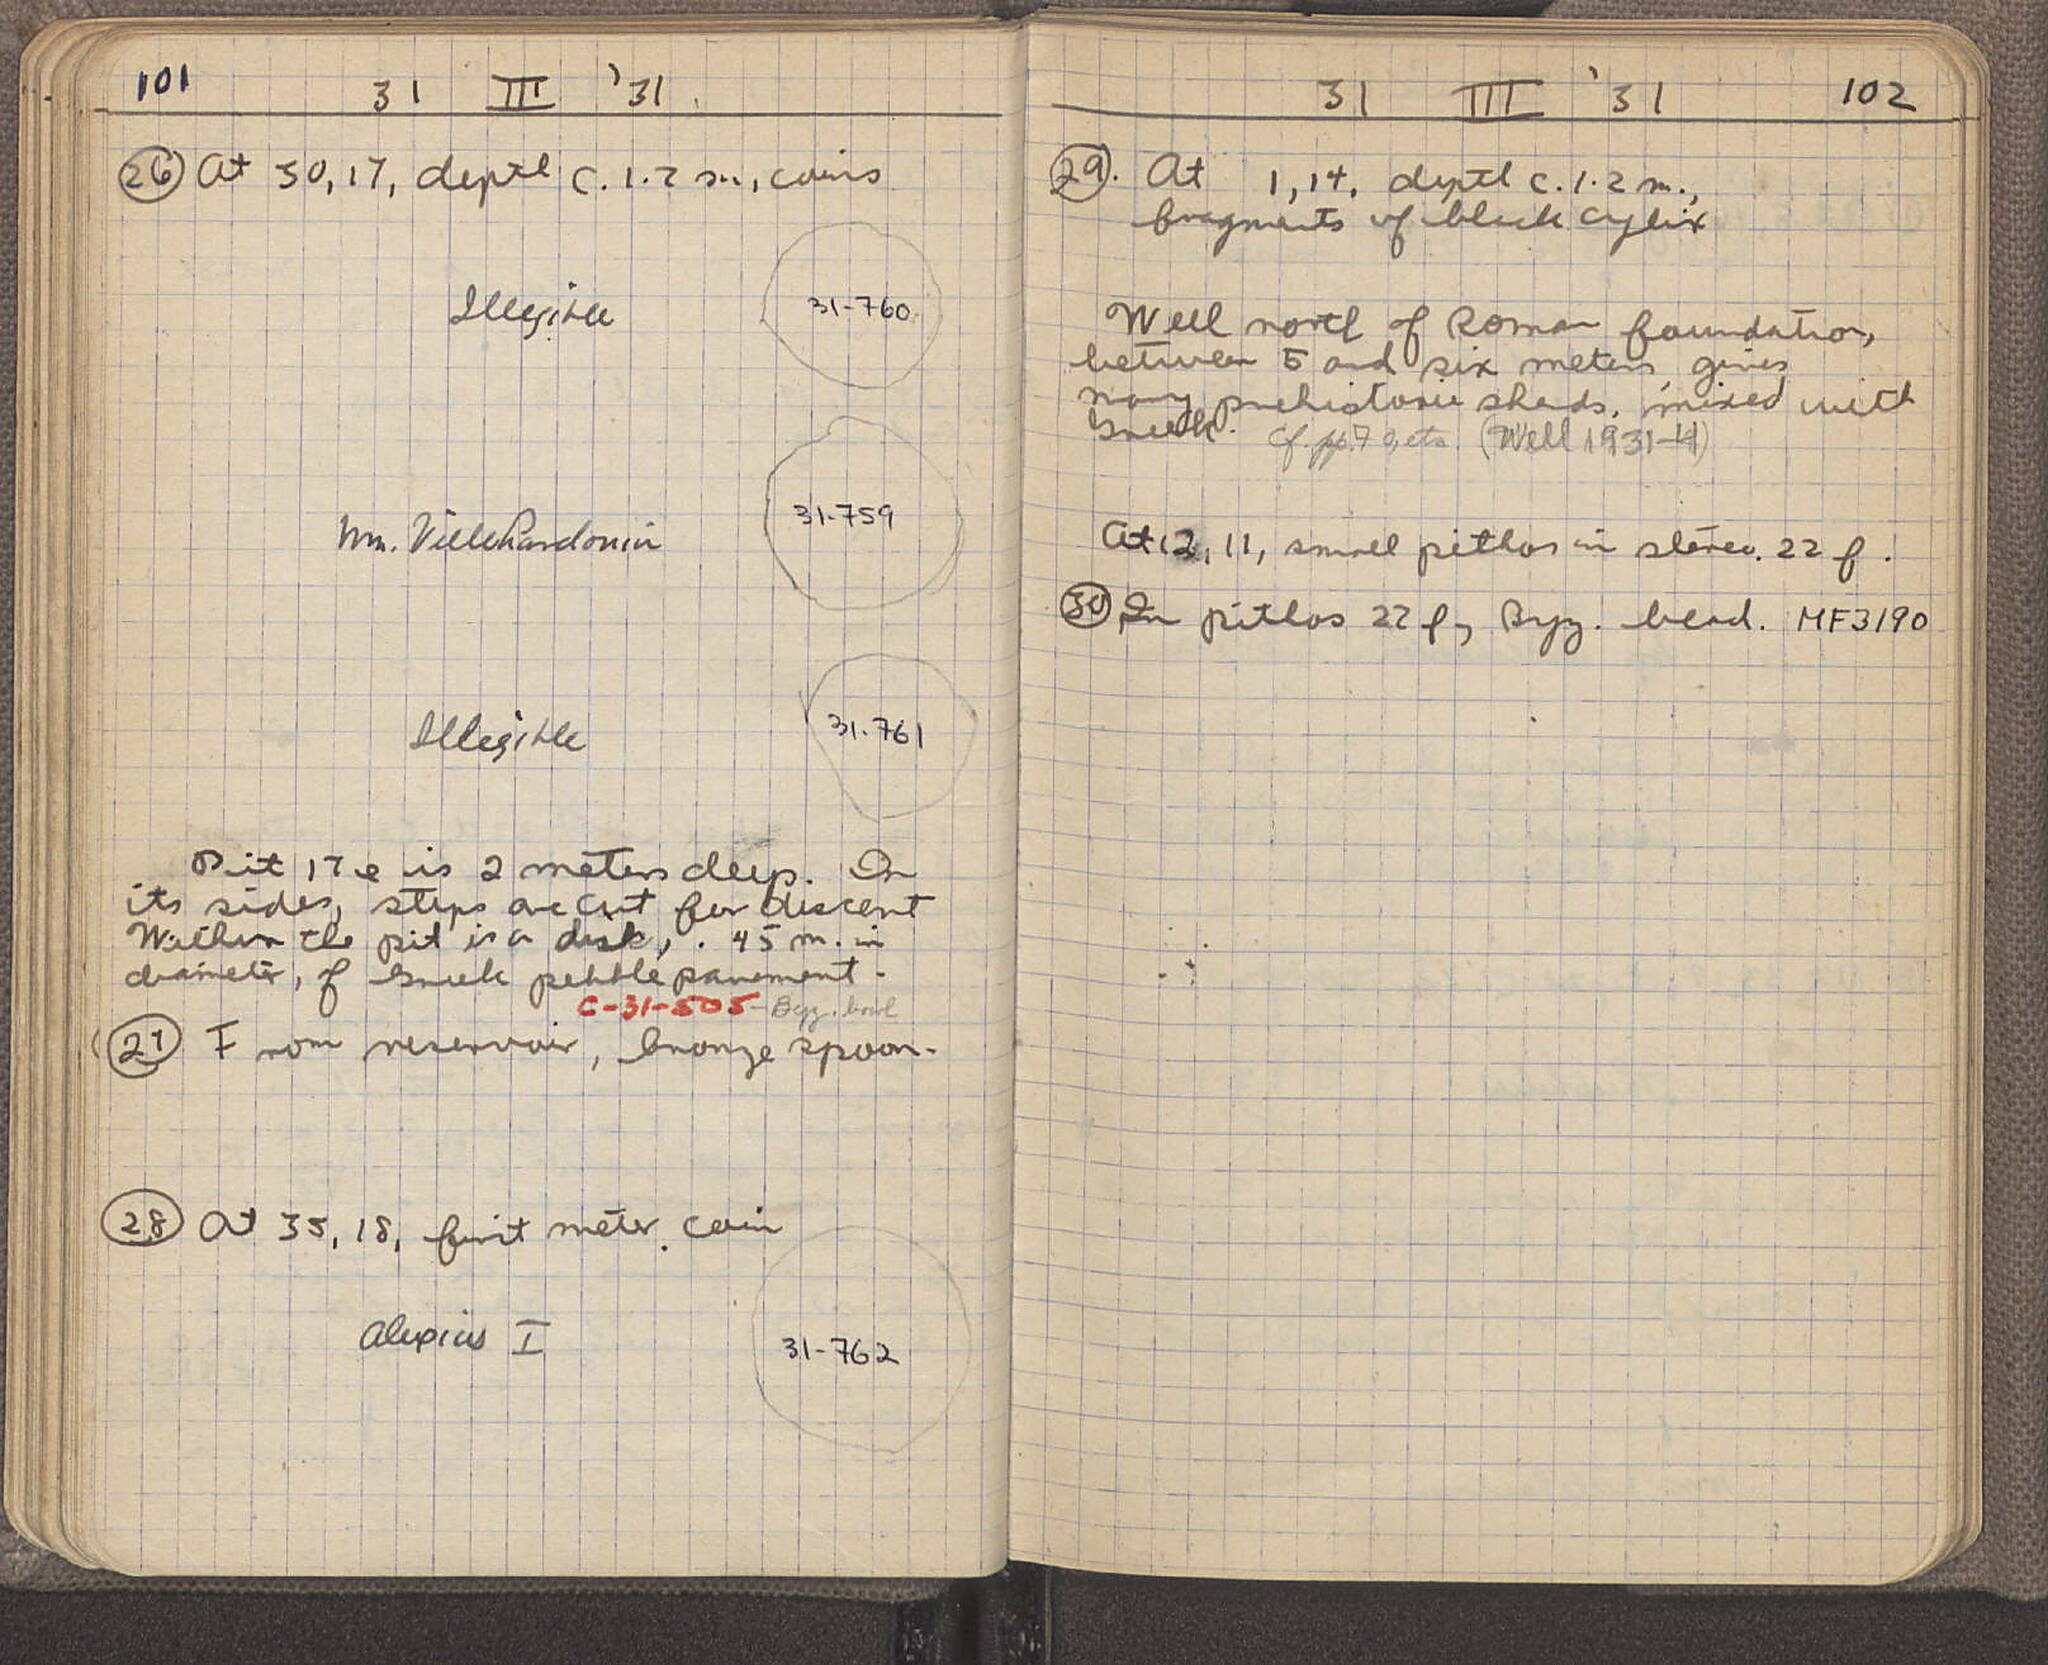 101
31 III '31
26 At 30, 17, depth c. 1.2 m., coins
Illegible 31-760
Wm. Villehardouin 31-759
Illegible 31-761
Pit 17e is 2 meters deep. In
its sides, steps are cut for descent
Within the pit is a disk, .45 m. in
diameter, of Greek pebble pavement.
C-31-505 - Byz. bowl
27 From reservoir, bronze spoon.
28 At 35, 18, first meter. coin
Alexius I 31-762
31 III '31 102
29. At 1, 14, depth c. 1.2 m.,
fragments of black cylix
Well north of Roman foundation,
between 5 and six meters, gives
many prehistoric sherds, mixed with
Greek. Cf. pp. etc. (Well 1931-)
At 12, 11, small pithos in stereo. 22 f.
30 In pithos 22 f, Byz. bead. MF3190